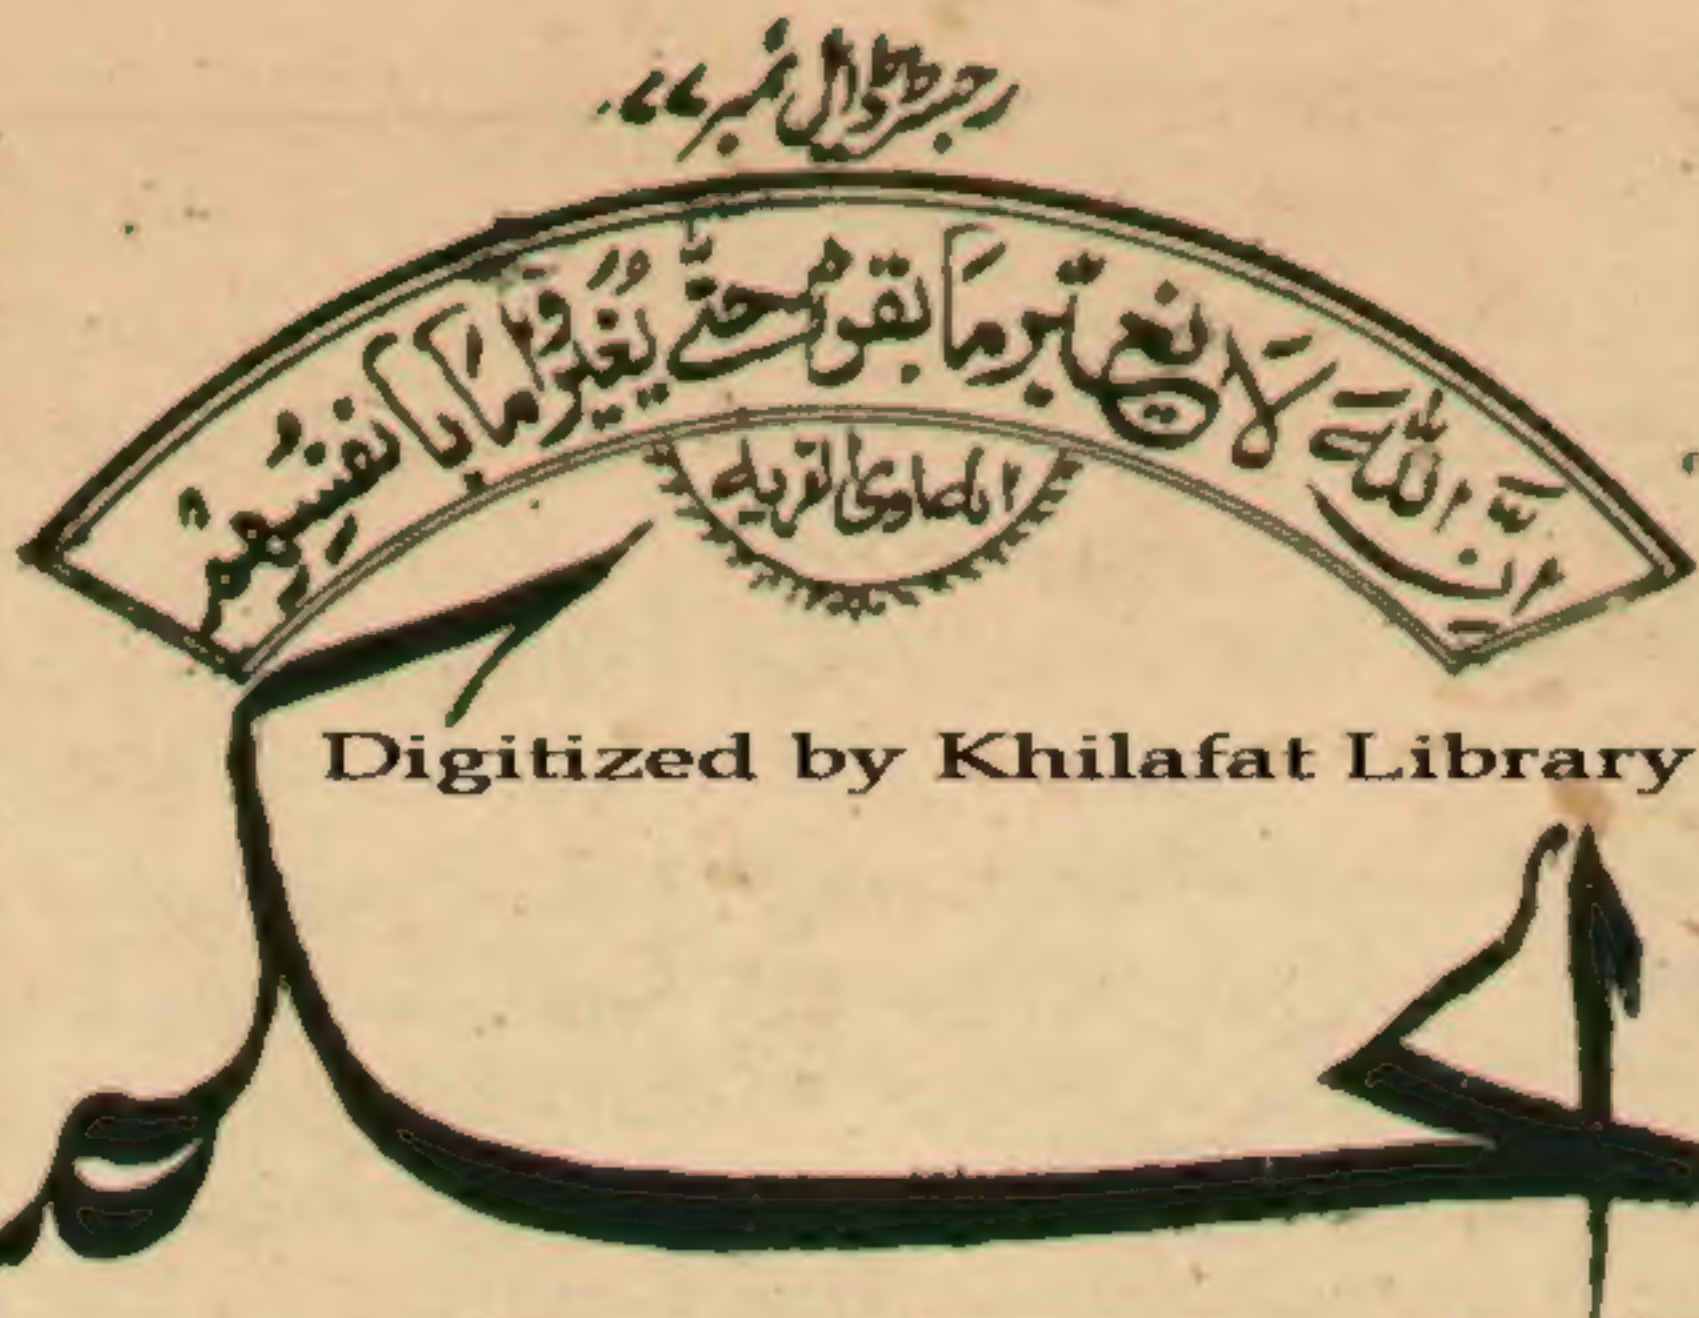 رجسٹرڈ ایل نمبر ۷۷۰
اِنَّ اللّٰهَ لَا یُغَیِّرُ مَا بِقَوْمٍ حَتّٰی یُغَیِّرُوْا مَا بِاَنْفُسِهِمْ
Digitized by Khilafat Library
الحکم